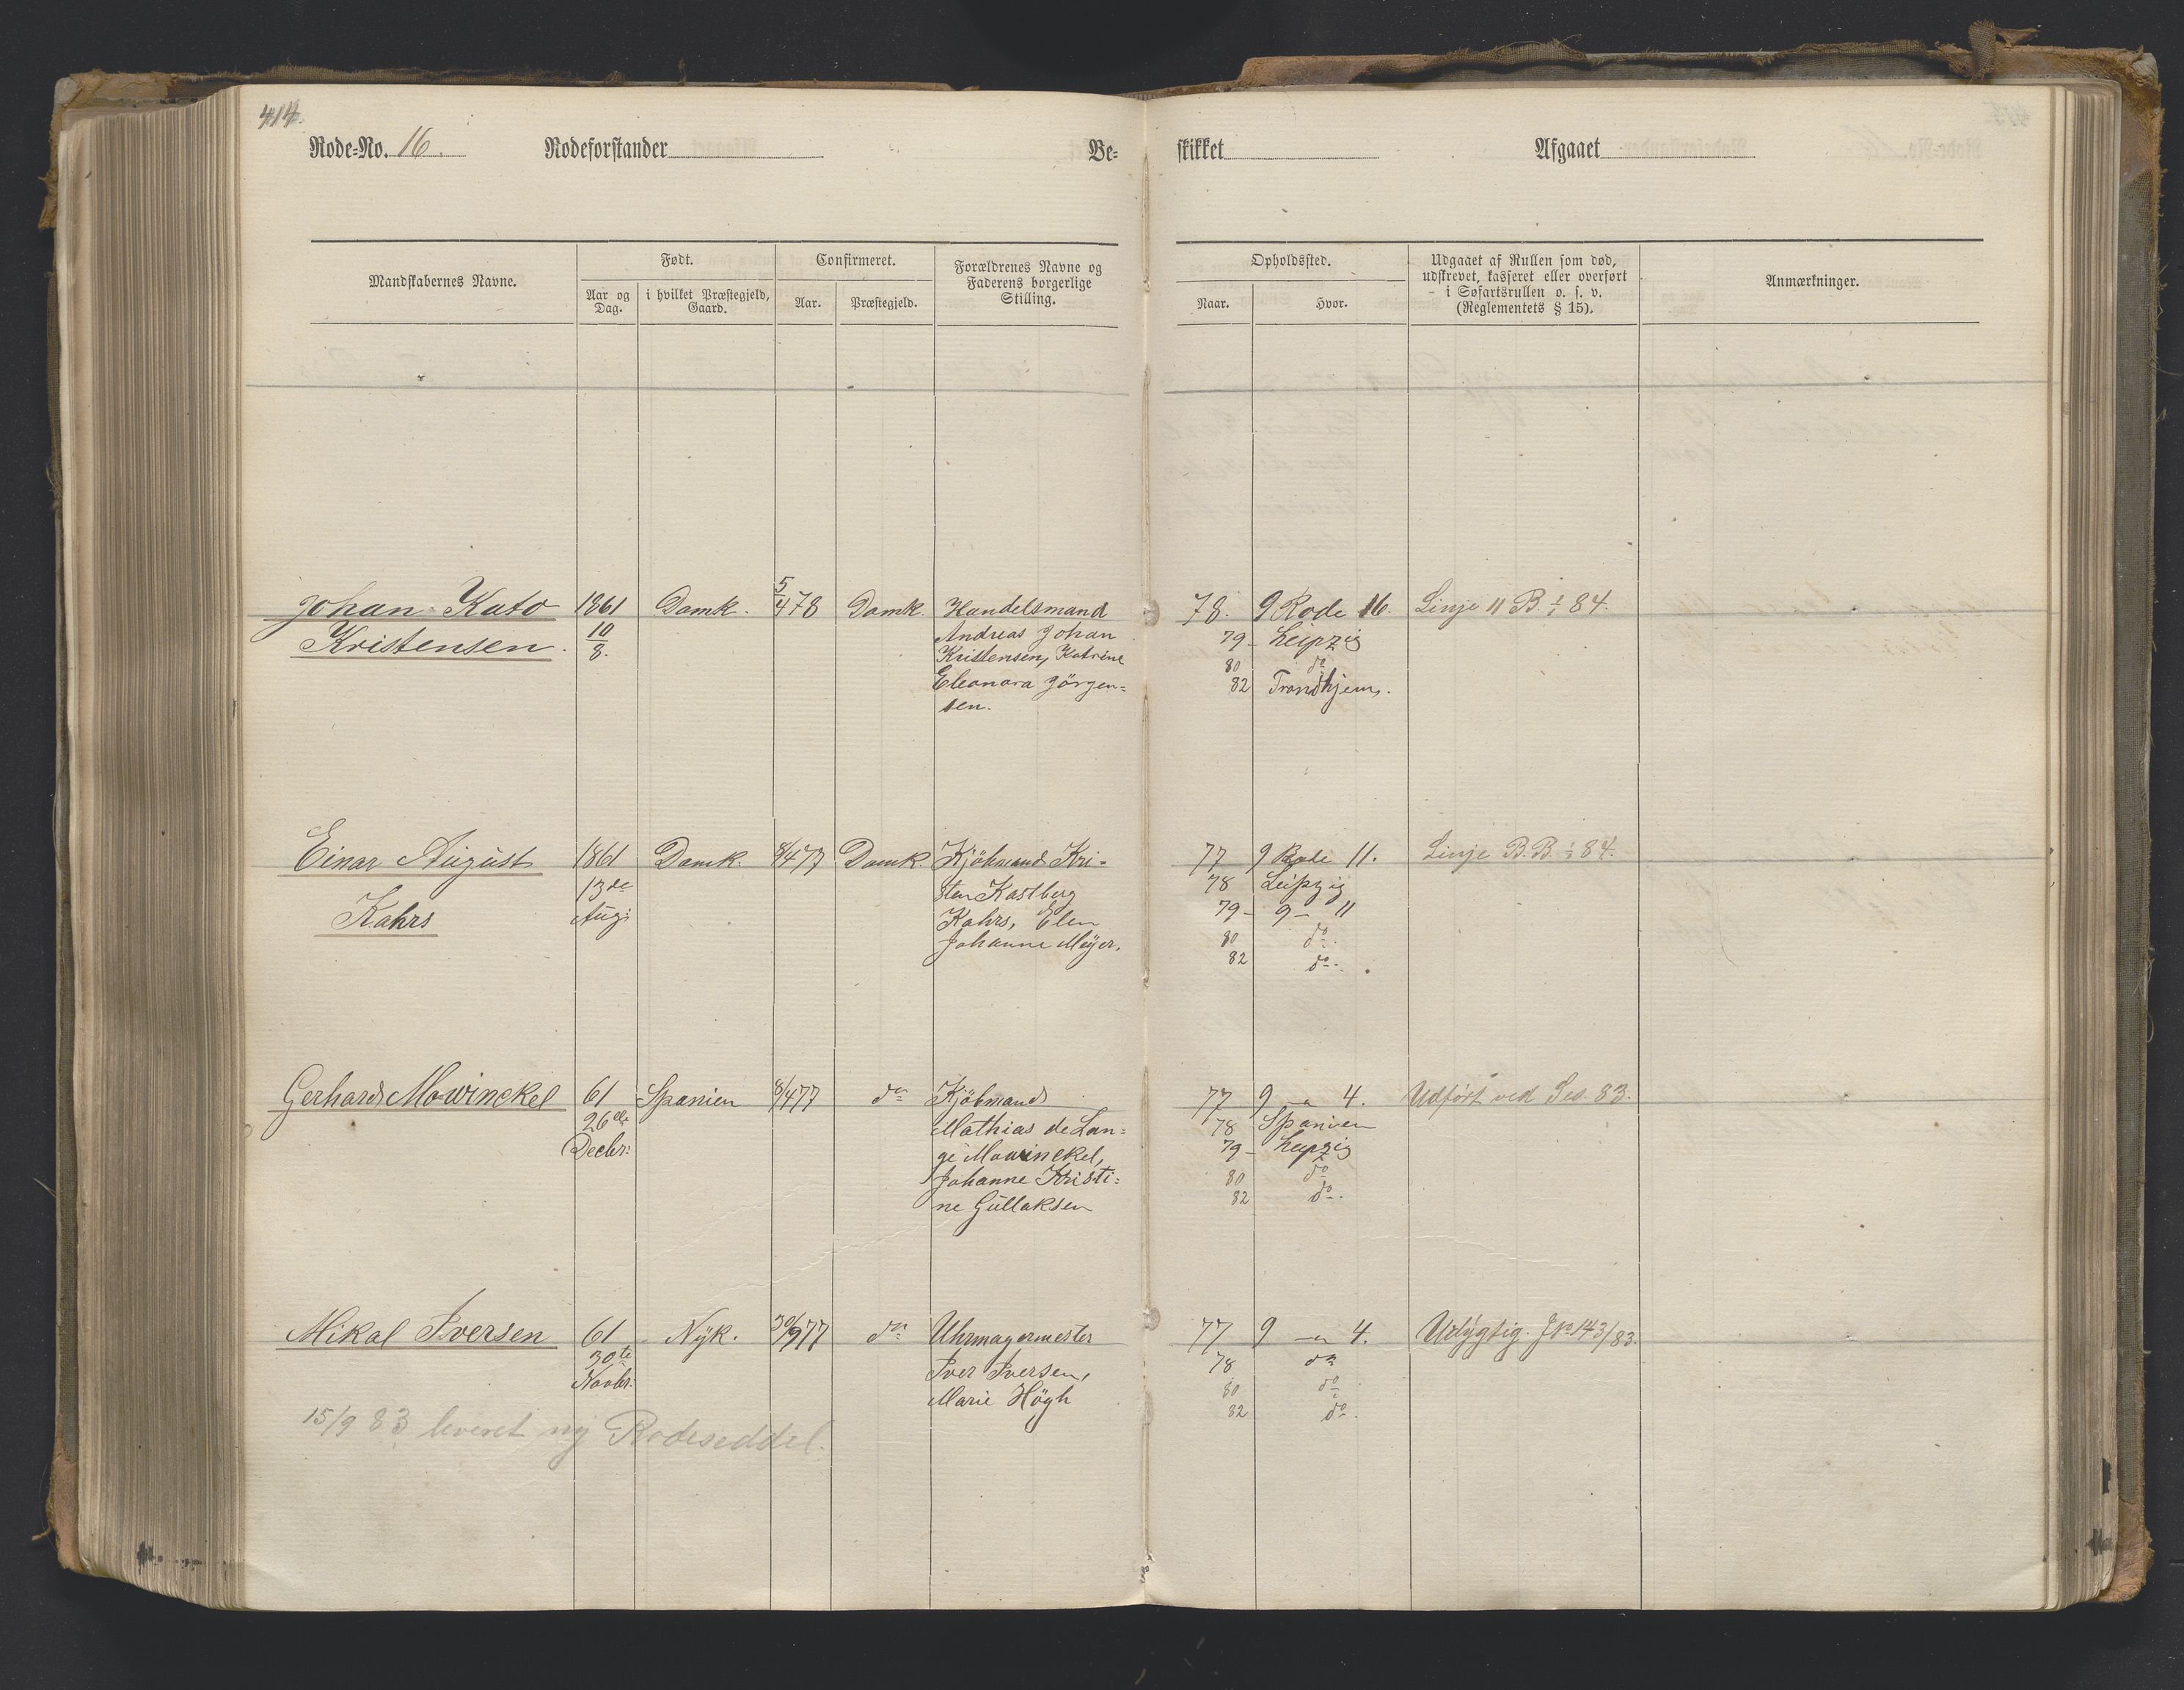 414.
Rode-No. 16. Rodeforstander Be-
skikket Afgaaet
Mandskabernes Navne.
Født.
Aar og Dag.
i hvilket Præstegjeld, Gaard.
Confirmeret.
Aar.
Præstegjeld.
Forældrenes Navne og
Faderens borgerlige
Stilling.
Opholdssted.
Naar.
Hvor.
Udgaaet af Rullen som død,
udskrevet, kasseret eller overført
i Søfartsrullen o. s. v.
(Reglementets § 15).
Anmærkninger.
Johan Kato 1861 Domk. 5/4 78 Domk. Handelsmand 78. 9 Rode 16. Linje 11 B. 1/1 84.
Kristensen. 10/8. Andreas Johan 79 - Leipzig
Kristensen, Katrine 80 do
Eleonora Jörgen= 82 Trondhjem.
sen.
Einar August 1861 Domk. 8/4 77 Domk. Kjöbmand Kri- 77 9 Rode 11. Linje B. B. 1/1 84.
13de sten Kastberg 78 Leipzig
Kahrs Aug: Kahrs, Elen 79 - 9 - 11
Johanne Meÿer. 80 do.
82 do.
Gerhard Mowinckel 61 Spanien 8/4 77 do Kjöbmand 77 9 - " 4. Udført ved Ses. 83.
26de Mathias de Lan= 78 Spanien
Decbr: ge Mowinckel, 79 - Leipzig
Johanne Kristi= 80 do
ne Gullaksen 82 do.
Mikal Iversen 61 Nÿk. 30/9 77 do Uhrmagermester 77 9 - " 4. Udÿgtig. J No 143/83.
30te Iver Iversen, 78 do
Novbr: Marie Högh 80 do
82 do.
15/9 83 leveret ny Rodeseddel.